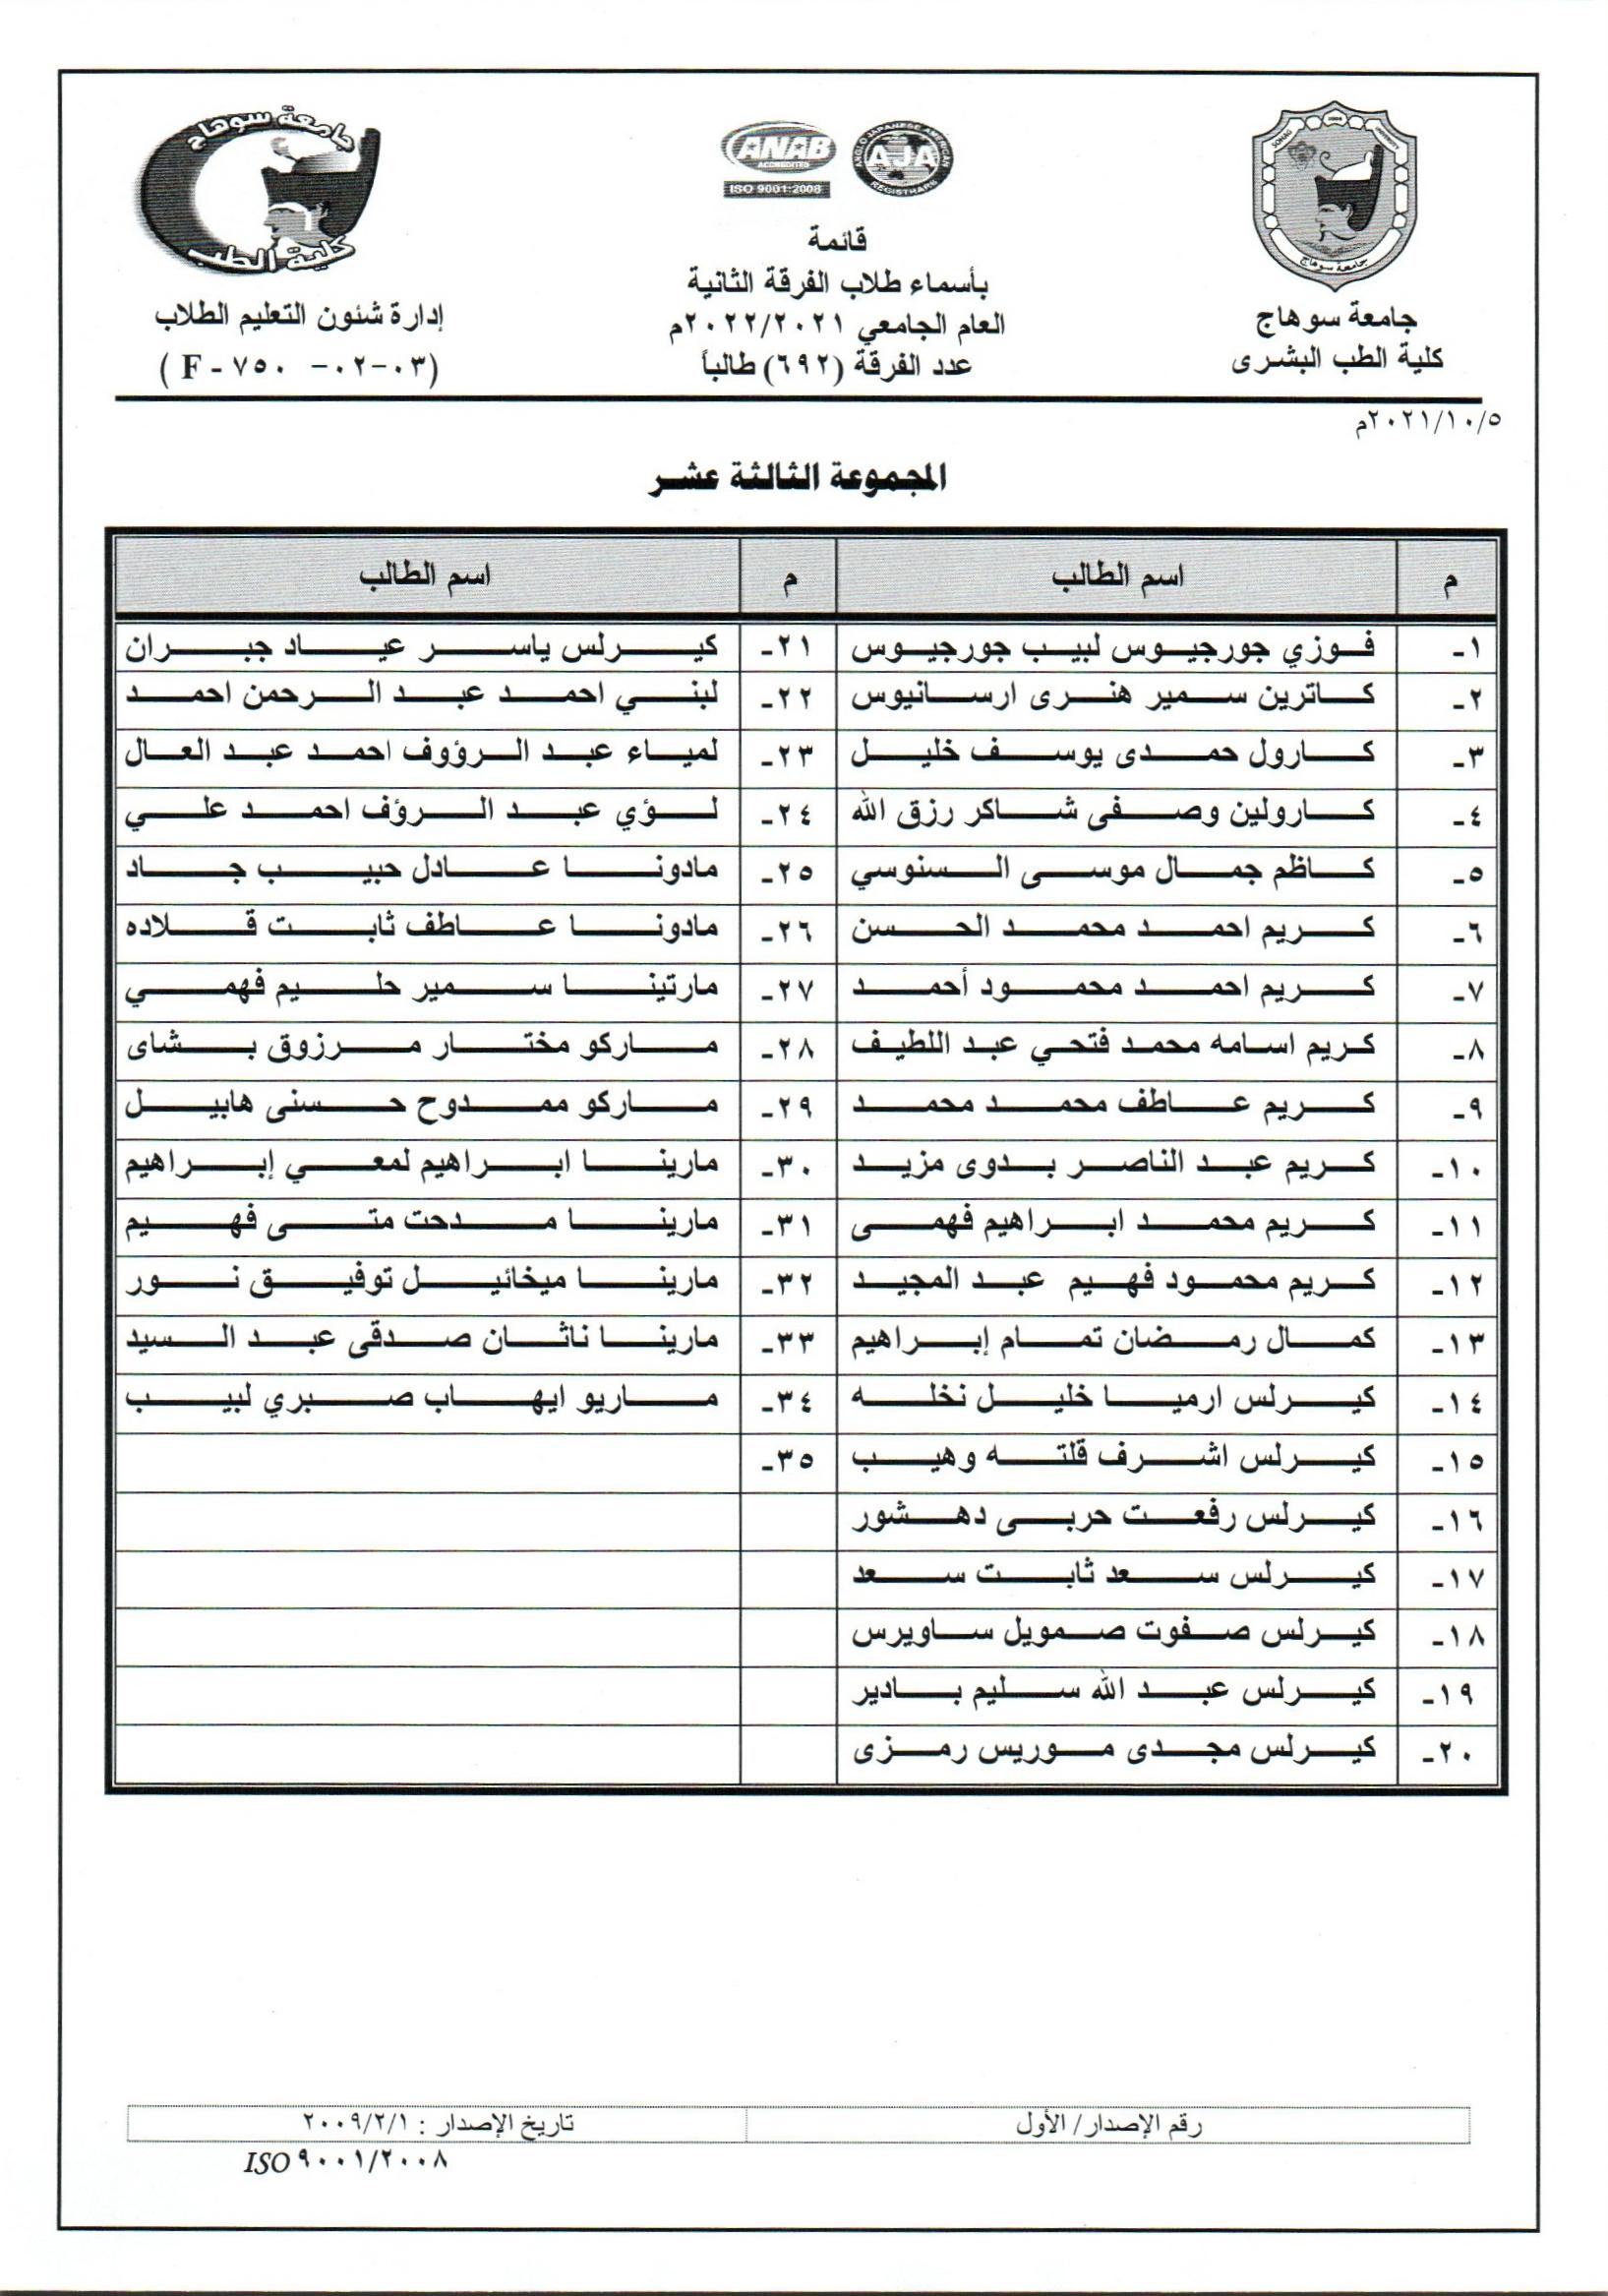 جامعة سوهاج
كلية الطب البشرى
SOHAG UNIVERSITY
جامعة سوهاج
ANAB
ACCREDITED
ISO 9001:2008
ANGLO JAPANESE AMERICAN
AJA
REGISTRARS
قائمة
بأسماء طلاب الفرقة الثانية
العام الجامعي ٢٠٢٢/٢٠٢١م
عدد الفرقة (٦٩٢) طالباً
جامعة سوهاج
كلية الطب
إدارة شئون التعليم الطلاب
(F - ٧٥٠ -٠٢-٠٣)
٢٠٢١/١٠/٥م
المجموعة الثالثة عشر
م اسم الطالب م اسم الطالب
١- فوزي جورجيوس لبيب جورجيوس ٢١- كيرلس ياسر عياد جبران
٢- كاترين سمير هنرى ارسانيوس ٢٢- لبني احمد عبد الرحمن احمد
٣- كارول حمدى يوسف خليل ٢٣- لمياء عبد الرؤوف احمد عبد العال
٤- كارولين وصفى شاكر رزق الله ٢٤- لؤي عبد الرؤف احمد علي
٥- كاظم جمال موسى السنوسي ٢٥- مادونا عادل حبيب جاد
٦- كريم احمد محمد الحسن ٢٦- مادونا عاطف ثابت قلاده
٧- كريم احمد محمود أحمد ٢٧- مارتينا سمير حليم فهمي
٨- كريم اسامه محمد فتحي عبد اللطيف ٢٨- ماركو مختار مرزوق بشاى
٩- كريم عاطف محمد محمد ٢٩- ماركو ممدوح حسنى هابيل
١٠- كريم عبد الناصر بدوى مزيد ٣٠- مارينا ابراهيم لمعي إبراهيم
١١- كريم محمد ابراهيم فهمى ٣١- مارينا مدحت متى فهيم
١٢- كريم محمود فهيم عبد المجيد ٣٢- مارينا ميخائيل توفيق نور
١٣- كمال رمضان تمام إبراهيم ٣٣- مارينا ناثان صدقى عبد السيد
١٤- كيرلس ارميا خليل نخله ٣٤- ماريو ايهاب صبري لبيب
١٥- كيرلس اشرف قلته وهيب ٣٥-
١٦- كيرلس رفعت حربى دهشور
١٧- كيرلس سعد ثابت سعد
١٨- كيرلس صفوت صمويل ساويرس
١٩- كيرلس عبد الله سليم بادير
٢٠- كيرلس مجدى موريس رمزى
رقم الإصدار/ الأول تاريخ الإصدار : ٢٠٠٩/٢/١
ISO ٩٠٠١/٢٠٠٨